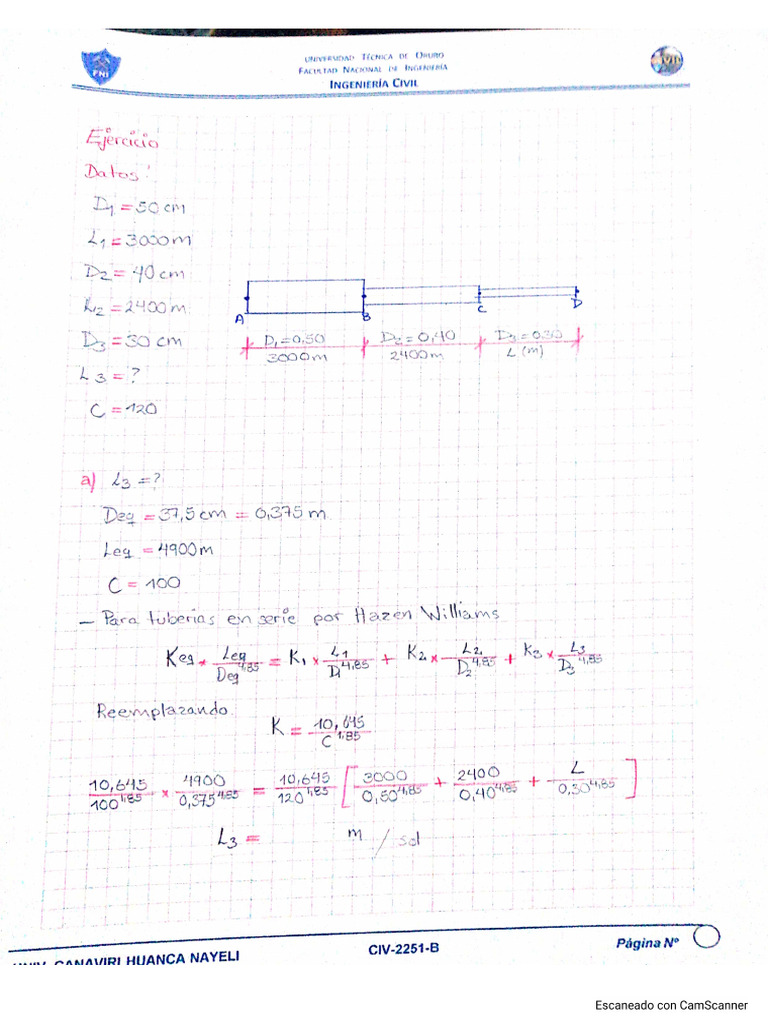 FNI
UNIVERSIDAD TÉCNICA DE ORURO
FACULTAD NACIONAL DE INGENIERÍA
INGENIERÍA CIVIL
Ejercicio
Datos:
D1 = 50 cm
L1 = 3000 m
D2 = 40 cm
L2 = 2400 m
D3 = 30 cm
L3 = ?
C = 120
A B C D
D1 = 0,50 D2 = 0,40 D3 = 0,30
3000 m 2400 m L (m)
a) L3 = ?
Deq = 37,5 cm = 0,375 m
Leq = 4900 m
C = 100
– Para tuberias en serie por Hazen Williams
Keq * Leq/Deq^4,85 = K1 * L1/D1^4,85 + K2 * L2/D2^4,85 + K3 * L3/D3^4,85
Reemplazando
K = 10,645/C^1,85
10,645/100^1,85 x 4900/0,375^4,85 = 10,645/120^1,85 [3000/0,50^4,85 + 2400/0,40^4,85 + L/0,30^4,85]
L3 = m / sol
UNIV. CANAVIRI HUANCA NAYELI
CIV-2251-B
Página N°
Escaneado con CamScanner